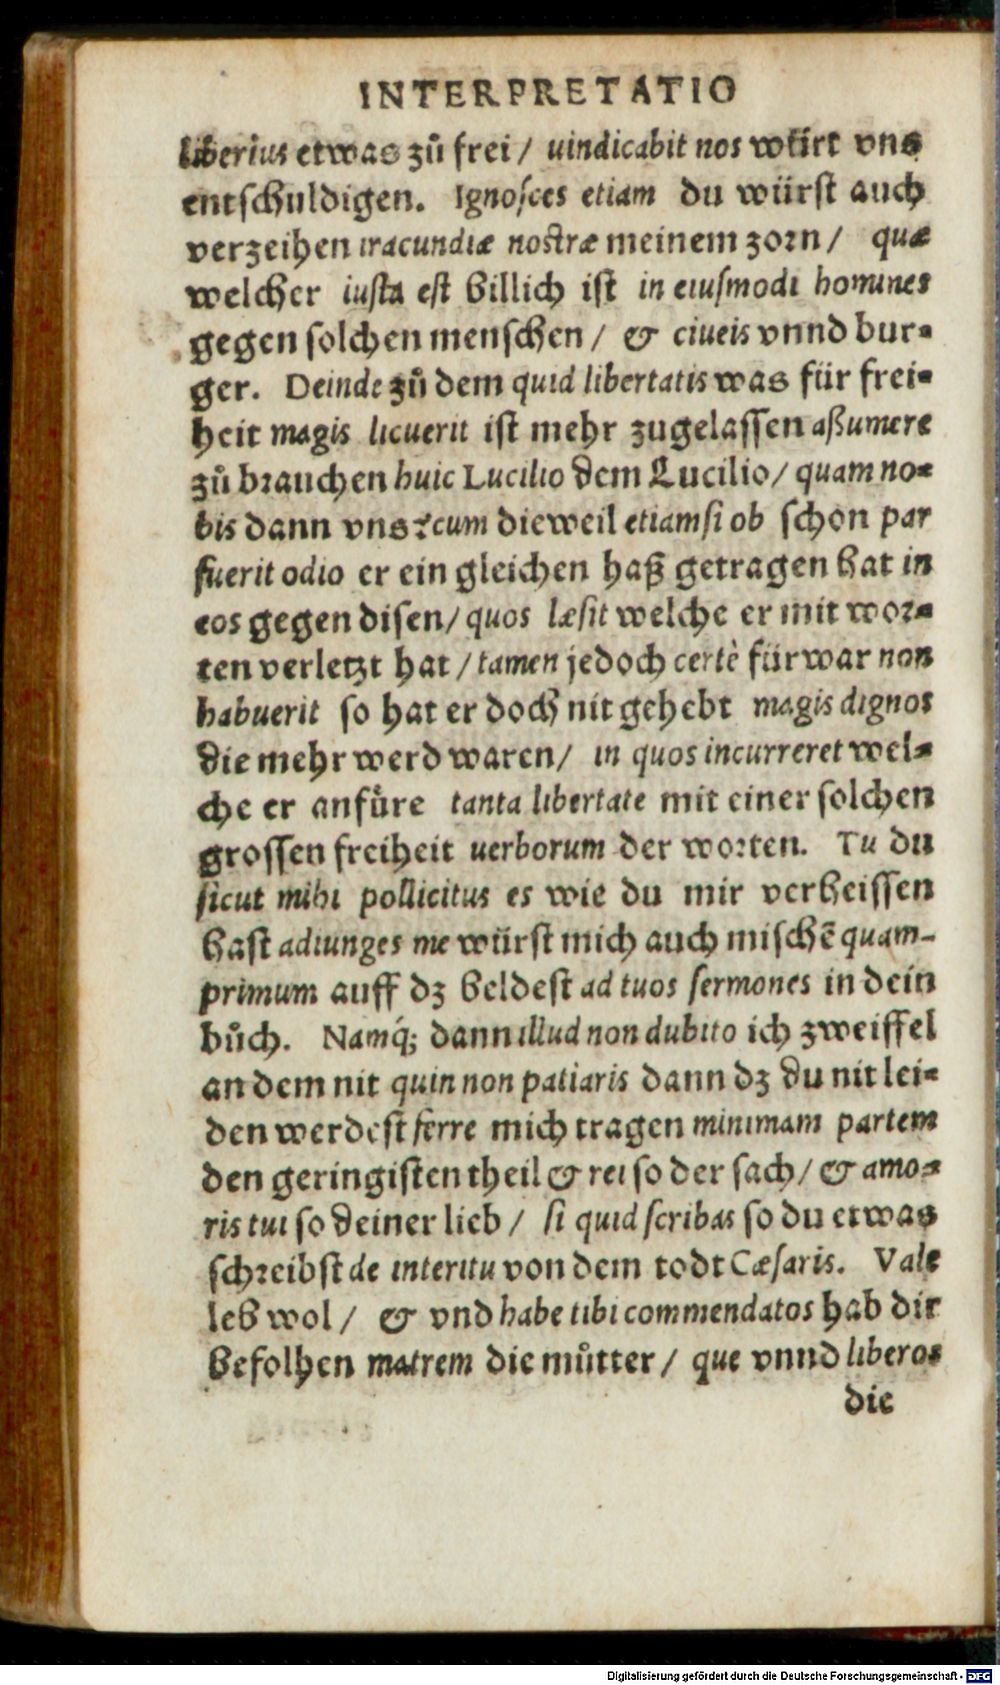 INTERPRETATIO
liberius etwas zů frei / uindicabit nos würt vns
entschuldigen. Ignosces etiam du würst auch
verzeihen iracundiæ nostræ meinem zorn / quæ
welcher iusta est billich ist in eiusmodi homines
gegen solchen menschen / & ciueis vnnd bur-
ger. Deinde zů dem quid libertatis was für frei-
heit magis licuerit ist mehr zugelassen aßumere
zů brauchen huic Lucilio dem Lucilio / quam no-
bis dann vns? cum dieweil etiamsi ob schon par
fuerit odio er ein gleichen haß getragen hat in
eos gegen disen / quos læsit welche er mit wor-
ten verletzt hat / tamen jedoch certè fürwar non
habuerit so hat er doch nit gehebt magis dignos
die mehr werd waren / in quos incurreret wel-
che er anfüre tanta libertate mit einer solchen
grossen freiheit uerborum der worten. Tu du
sicut mihi pollicitus es wie du mir verheissen
hast adiunges me würst mich auch mischē quam-
primum auff dz beldest ad tuos sermones in dein
bůch. Namq́; dann illud non dubito ich zweiffel
an dem nit quin non patiaris dann dz du nit lei-
den werdest ferre mich tragen minimam partem
den geringisten theil & rei so der sach / & amo-
ris tui so deiner lieb / si quid scribas so du etwas
schreibst de interitu von dem todt Cæsaris. Vale
leb wol / & vnd habe tibi commendatos hab dir
befolhen matrem die můtter / que vnnd liberos
die
Digitalisierung gefördert durch die Deutsche Forschungsgemeinschaft - DFG